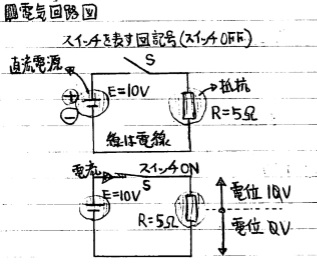 電気回路図
スイッチを表す図記号(スイッチOFF)
直流電源
S
抵抗
+
E=10V
−
R=5Ω
線は電線
電流
スイッチON
S
E=10V
R=5Ω
電位10V
電位0V